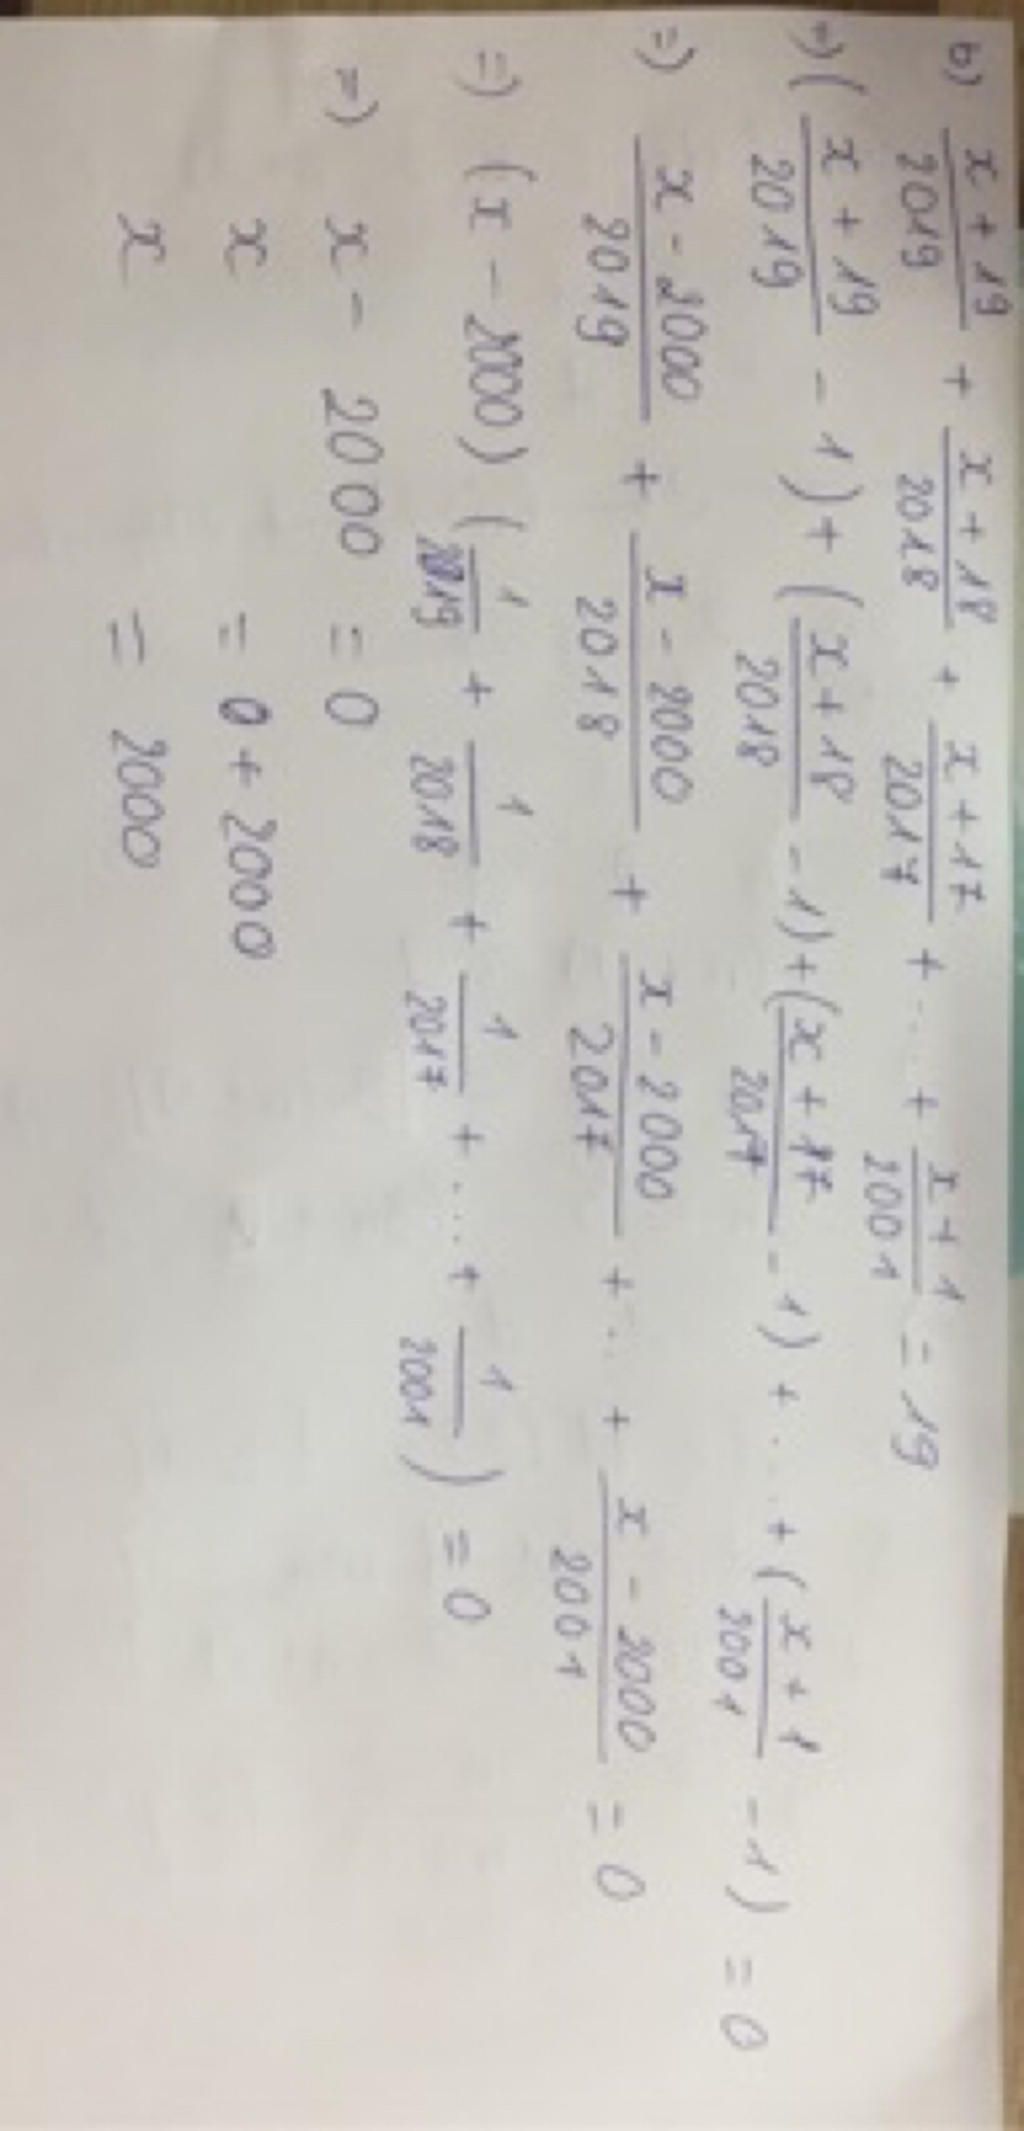 b) \frac{x+19}{2019} + \frac{x+18}{2018} + \frac{x+17}{2017} + ... + \frac{x+1}{2001} = 19
=) (\frac{x+19}{2019} - 1) + (\frac{x+18}{2018} - 1) + (\frac{x+17}{2017} - 1) + ... + (\frac{x+1}{2001} - 1) = 0
=) \frac{x-2000}{2019} + \frac{x-2000}{2018} + \frac{x-2000}{2017} + ... + \frac{x-2000}{2001} = 0
=) (x - 2000) (\frac{1}{2019} + \frac{1}{2018} + \frac{1}{2017} + ... + \frac{1}{2001}) = 0
=) x - 2000 = 0
x = 0 + 2000
x = 2000